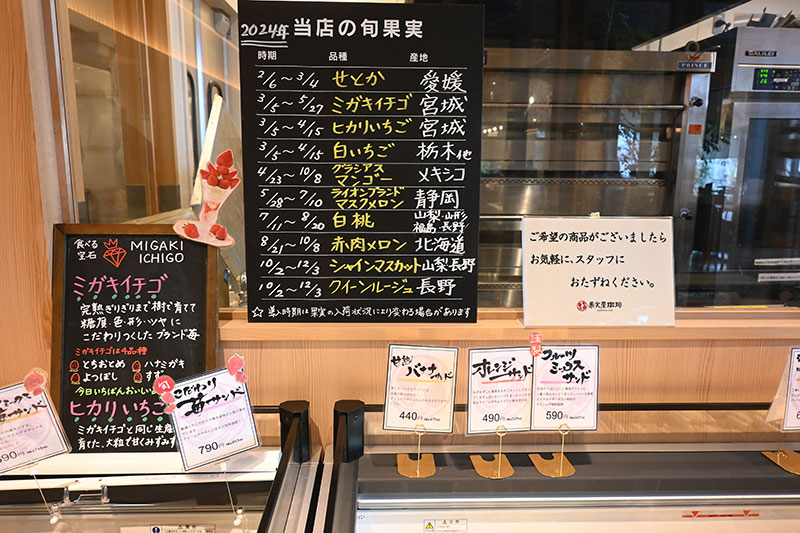 2024年 当店の旬果実
時期 品種 産地
2/6～3/4 せとか 愛媛
3/5～5/27 ミガキイチゴ 宮城
3/5～4/15 ヒカリいちご 宮城
3/5～4/15 白いちご 栃木他
4/23～10/8 グラシアスマンゴー メキシコ
5/28～7/10 ライオンブランドマスクメロン 静岡
7/11～8/20 白桃 山梨・山形 福島・長野
8/21～10/8 赤肉メロン 北海道
10/2～12/3 シャインマスカット 山梨・長野
10/2～12/3 クイーンルージュ 長野
☆ 導入時期は果実の入荷状況により変わる場合があります
食べる宝石 MIGAKI ICHIGO
ミガキイチゴ
完熟ぎりぎりまで樹で育て
糖度・色・形・ツヤに
こだわりつくしたブランド苺
ミガキイチゴは4品種
とちおとめ ハナミガキ
よつぼし
今日いちばんおいしい
ヒカリいちご
ミガキイチゴと同じ生産
育てた、大粒で甘くみずみ
ご希望の商品がございましたら
お気軽に、スタッフに
おたずねください。
PRINCE
旬
こだわり苺サンド
790円
バナナサンド
440円
オレンジサンド
490円
フルーツミックスサンド
590円
590円